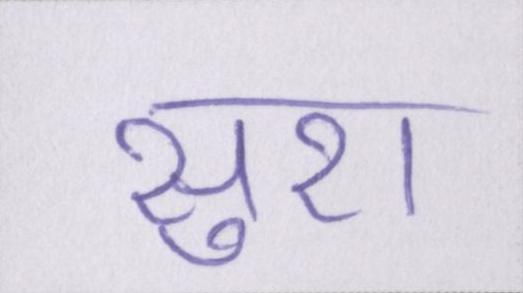 सुरा